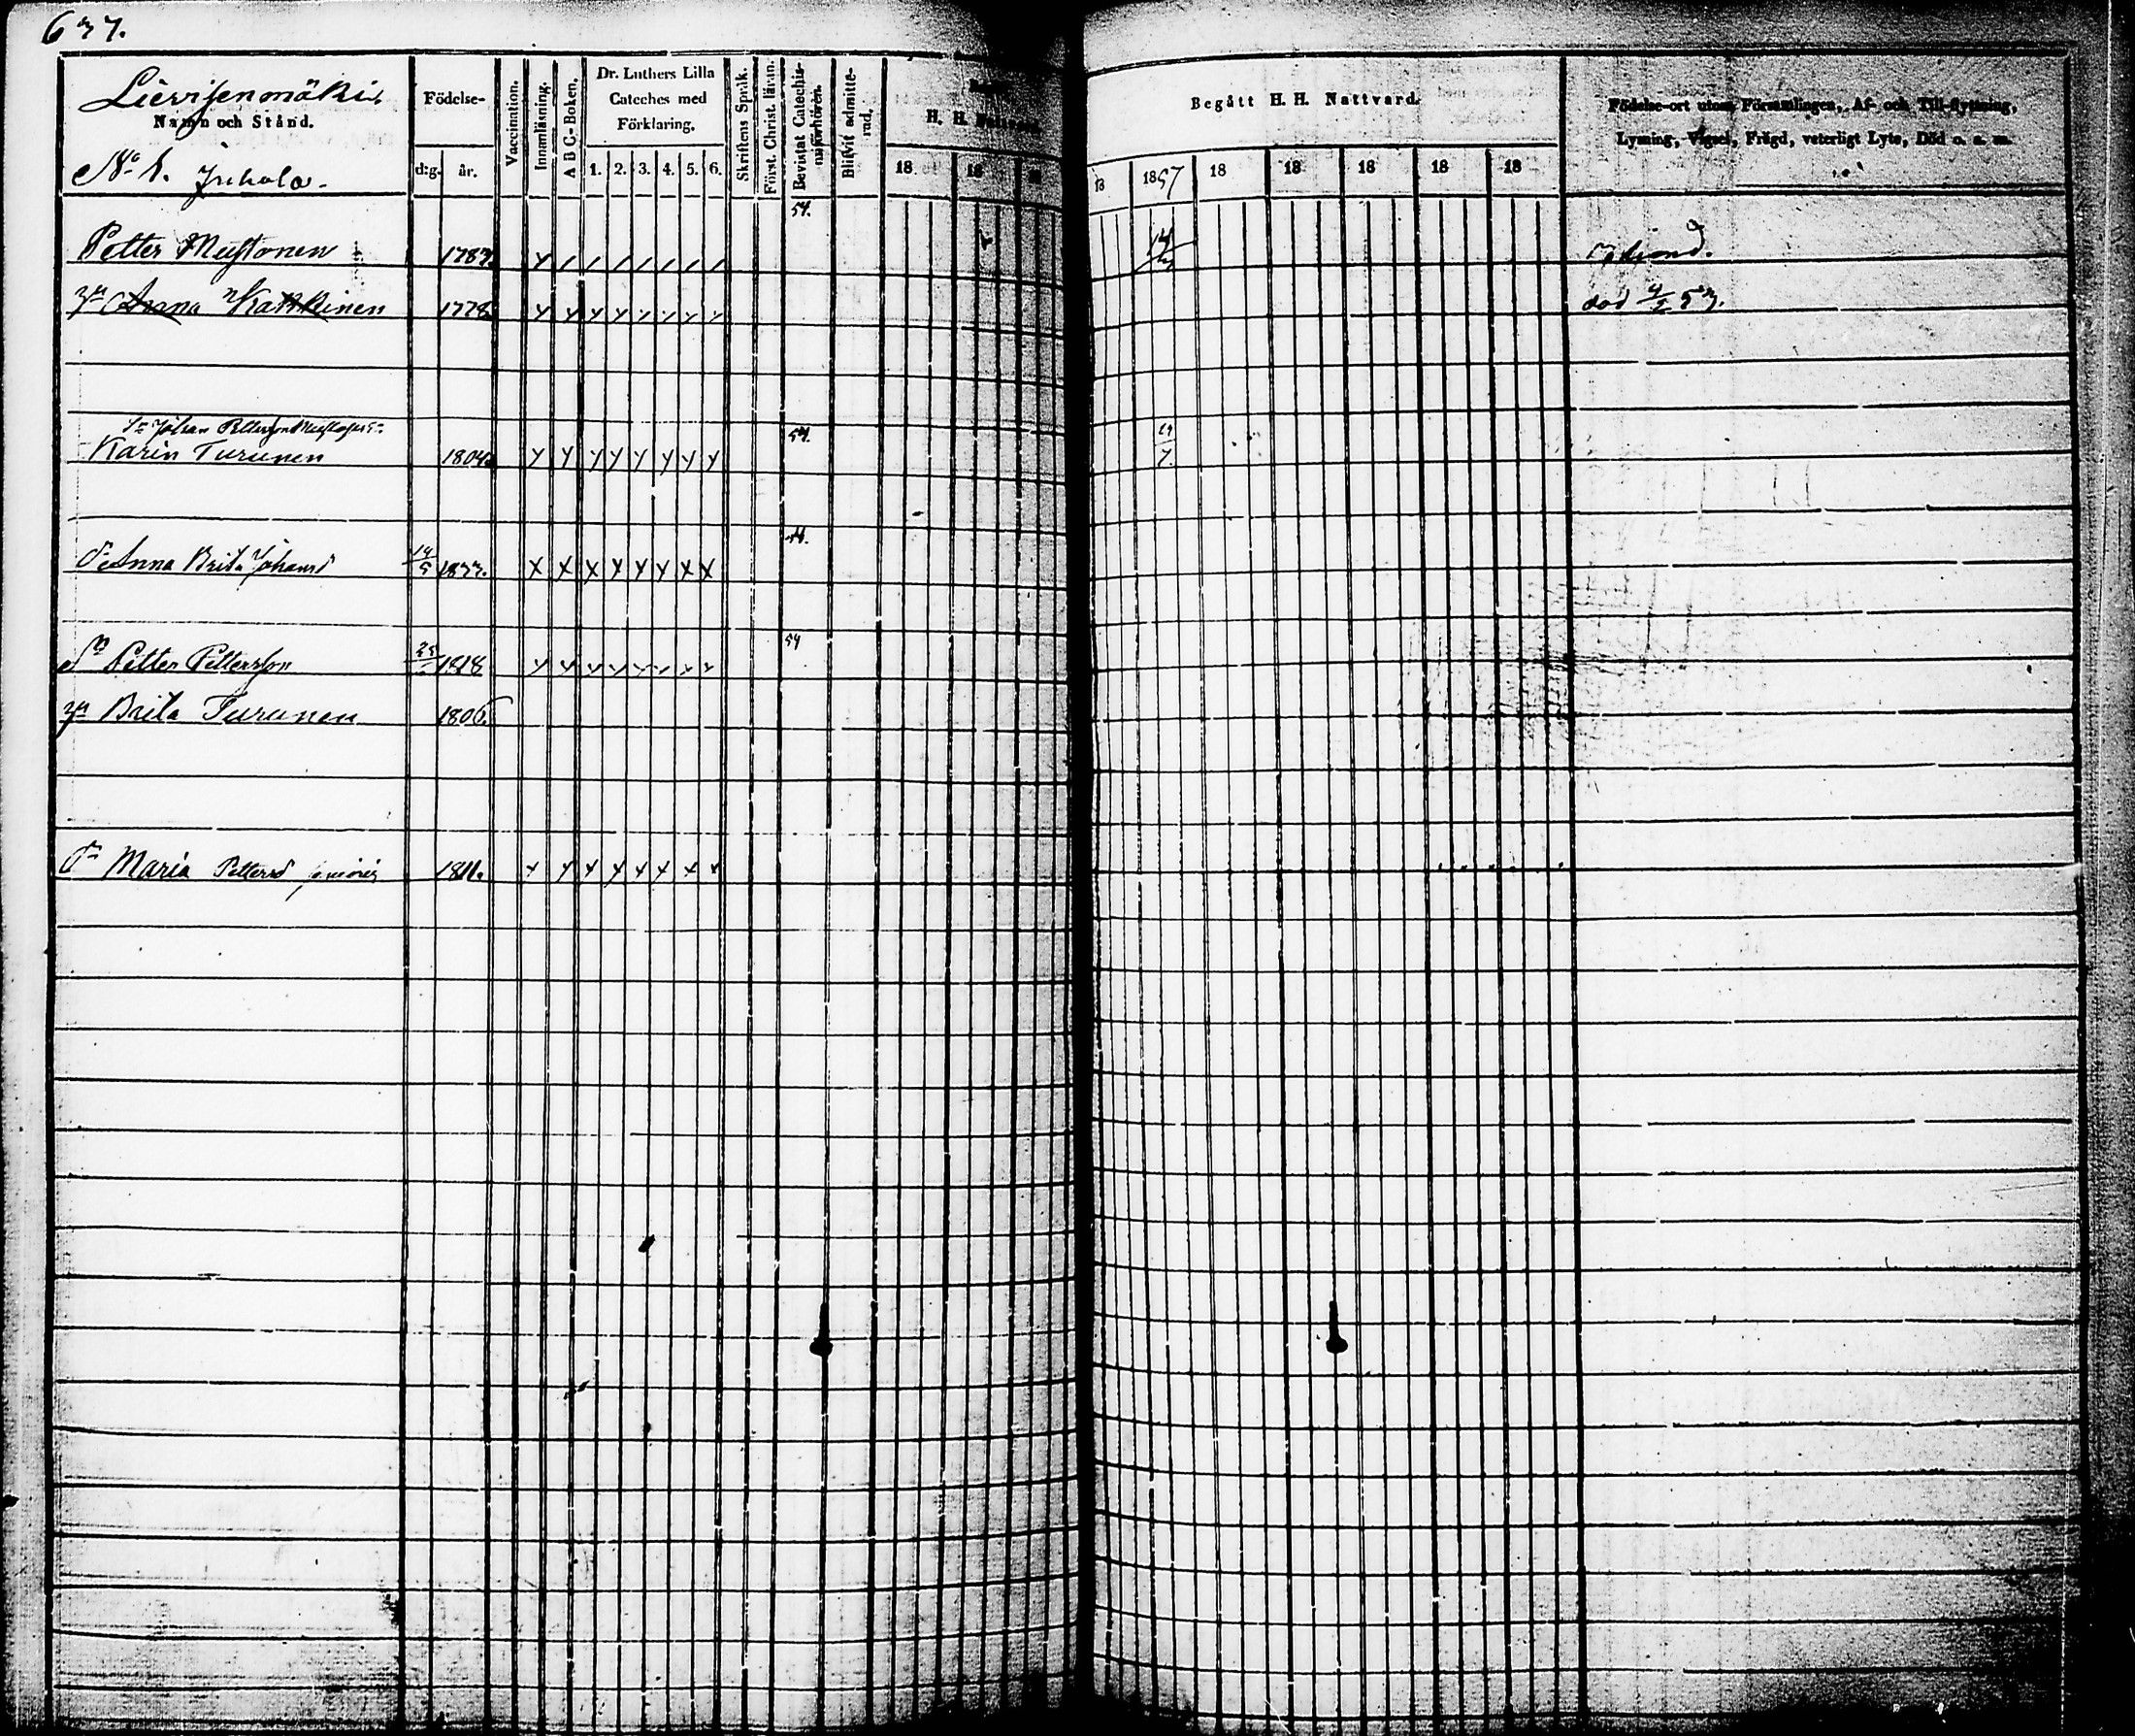 637.
Lievisenmäki
Namn och Stånd.
No 1. Juhola.
Födelse-
d:g. år.
Vaccination.
Innanläsning.
A B C-Boken.
Dr. Luthers Lilla
Cateches med
Förklaring.
1. 2. 3. 4. 5. 6.
Skriftens Språk.
Först. Christ. läran.
Bevistat Catechis-
miförhören.
Blifvit admitte-
rad.
H. H. Nattvard.
18 18
Begått H. H. Nattvard.
18 1857 18 18 18 18 18
Födelse-ort utom Församlingen, Af- och Till-flyttning,
Lysning, Vigsel, Frägd, veterligt Lyte, Död o. s. m.
54.
Petter Mustonen 1787.
Anna Kakkinen 1778. död 53.
Johan Pettersson
Karin Turunen 1804. 54.
Dr Anna Brita Johansd 14/5 1833.
Sn Petter Pettersson 25 1818 54
Brita Turunen 1806.
Dr Maria Pettersd 1811.